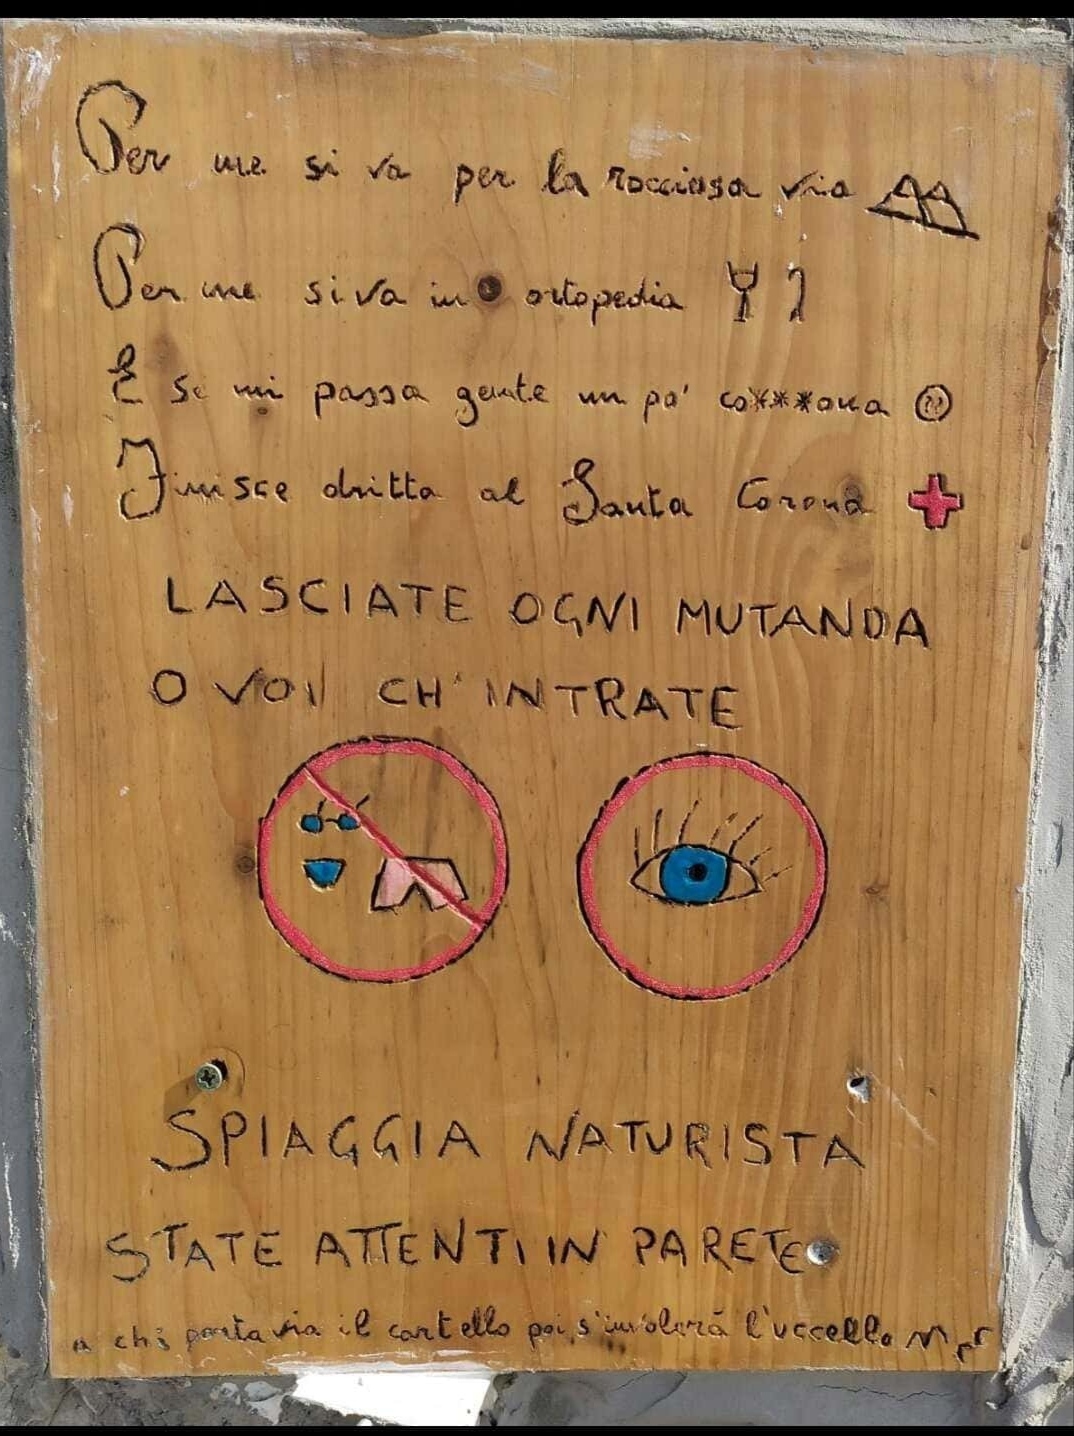 Per me si va per la rocciosa via
Per me si va in ortopedia
E se mi passa gente un po' co***ona
Finisce dritta al Santa Corona
LASCIATE OGNI MUTANDA
O VOI CH'INTRATE
SPIAGGIA NATURISTA
STATE ATTENTI IN PARETE
a chi porta via il cartello poi s'involerà l'uccello